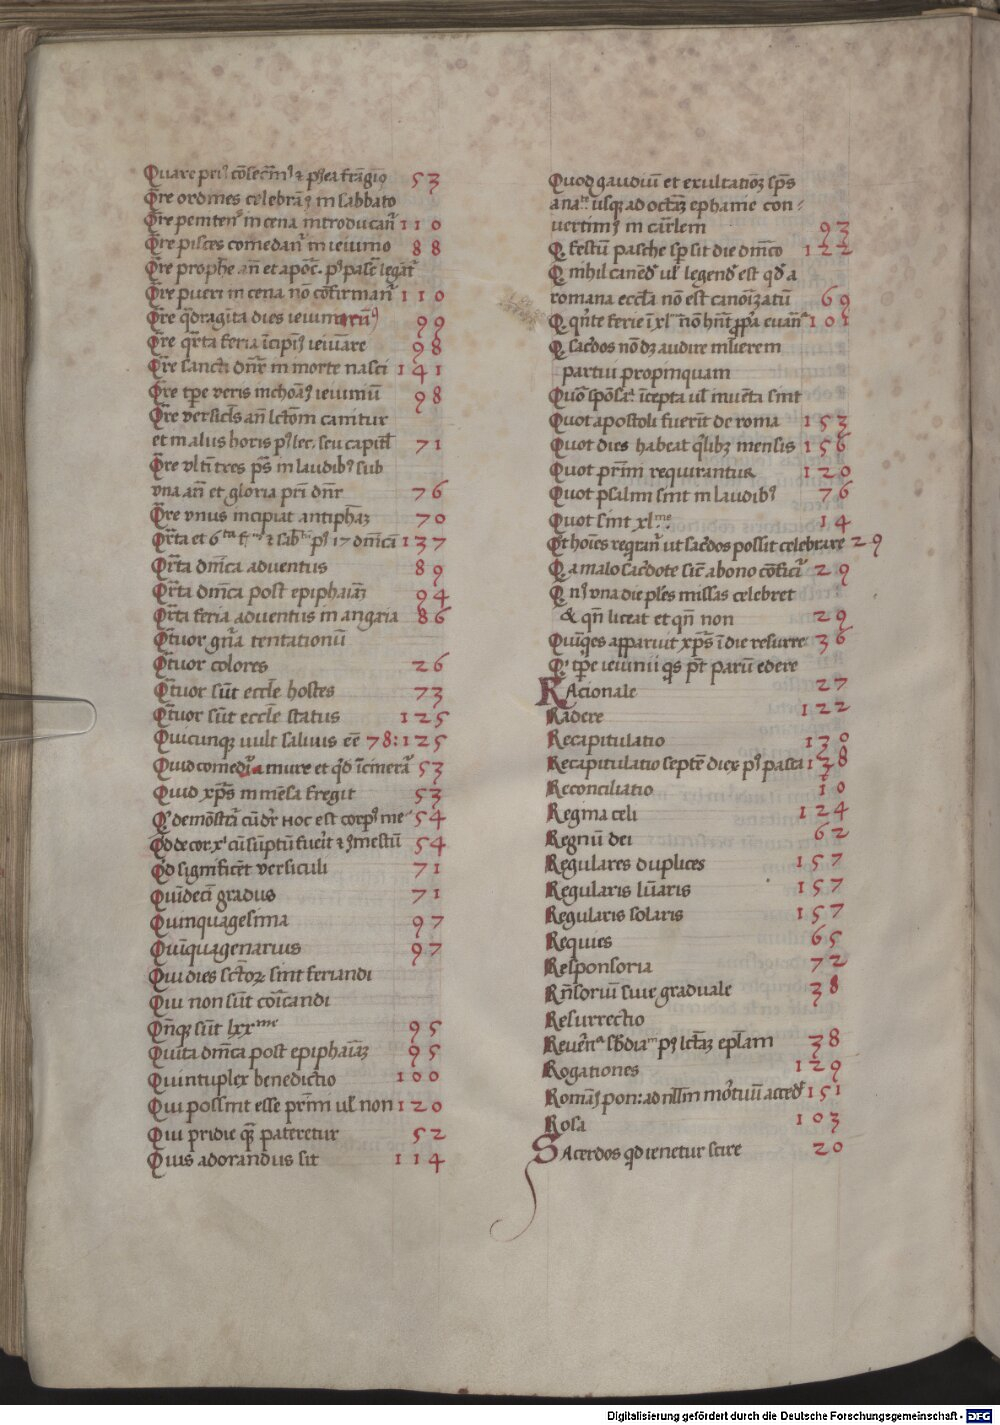 Quare pri⁹ cōsecrm⁹ & p⁹ea frāgim⁹ 53
Qre ordines celebrāt in sabbato
Qre peniten in cena introducant 110
Qre pisces comedant in ieiunio 88
Qre prophe añ et apoc. p⁹ pasc legāt
Qre pueri in cena nō cōfirmant 110
Qre qdragīta dies ieiunam⁹ 99
Qre qrta feria īcipit ieiunare 98
Qre sancti dñr in morte nasci 141
Qre tpe veris inchoāt ieiuniū 98
Qre versicls añ lctōm canitur
et in aliis horis p⁹ lec. seu capitl 71
Qre vltī tres ps in laudib⁹ sub
vna añ et gloria pri dñr 76
Qre vnus incipiat antiphaz 70
Qrta et 6ta f. & sab. p⁹ 17 dmcā 137
Qrta dmca aduentus 89
Qrta dmca post epiphaiaz 94
Qrta feria aduentus in angaria 86
Qtuor gña tentationū
Qtuor colores 26
Qtuor sūt eccle hostes 73
Qtuor sūt eccle status 125
Quicunqz uult saluus eē 78:125
Quid comedit mure et qd īcinera 53
Quid xps in mēsa fregit 53
Q demōstrat cū dr Hoc est corp⁹ me 54
Qd de cor. x cū sūptū fuerit & 54
Qd significēt versiculi 71
Quīdeci gradus 71
Quinquagesima 97
Quīquagenarius 97
Qui dies sctōrz sint feriandi
Qui non sūt coīcandi
Qñqz sūt lxx me 95
Quīta dmca post epiphaiaz 95
Quintuplex benedictio 100
Qui possint esse prīmi ul non 120
Qui pridie qm pateretur 52
Quis adorandus sit 114
Quod gaudiū et exultationz sps
a natte usqz ad octaz ephanie con-
uertim⁹ in carlem 93
Q festū pasche sp sit die dmco 122
Q nihil canend ul legend est qd a
romana eccla nō est canoīzatū 69
Q qnte ferie ī xl nō hnt ppa euan 101
Q sacdos nō dz audire mlierem
partui propinquam
Quō spōsa īcepta ul inuēta sint
Quot apostoli fuerīt de roma 153
Quot dies habeat qlibz mensis 156
Quot prīmi requirantur 120
Quot psalmi sint in laudib⁹ 76
Quot sint xl me 14
Qt hoīes reqrant ut sacdos possit celebrare 29
Q a malo sacdote sic a bono cōficit 29
Q n⁹ vna die ples missas celebret
& qñ liceat et qñ non 29
Quīqes apparuit xps ī die resurre 36
Q tpe ieiunii qs pt parū edere
Racionale 27
Radere 122
Recapitulatio 130
Recapitulatio septē diex p⁹ pasca 138
Reconciliatio 10
Regina celi 124
Regnū dei 62
Regulares duplices 157
Regularis lunaris 157
Regularis solaris 157
Requies 65
Responsoria 72
Rñsoriū siue graduale 38
Resurrectio
Reuēn sbdia p⁹ lctaz eplam 38
Rogationes 129
Romā⁹ pon: ad nllm mortuū acced 151
Rosa 103
Sacerdos qd tenetur scire 20
Digitalisierung gefördert durch die Deutsche Forschungsgemeinschaft - DFG